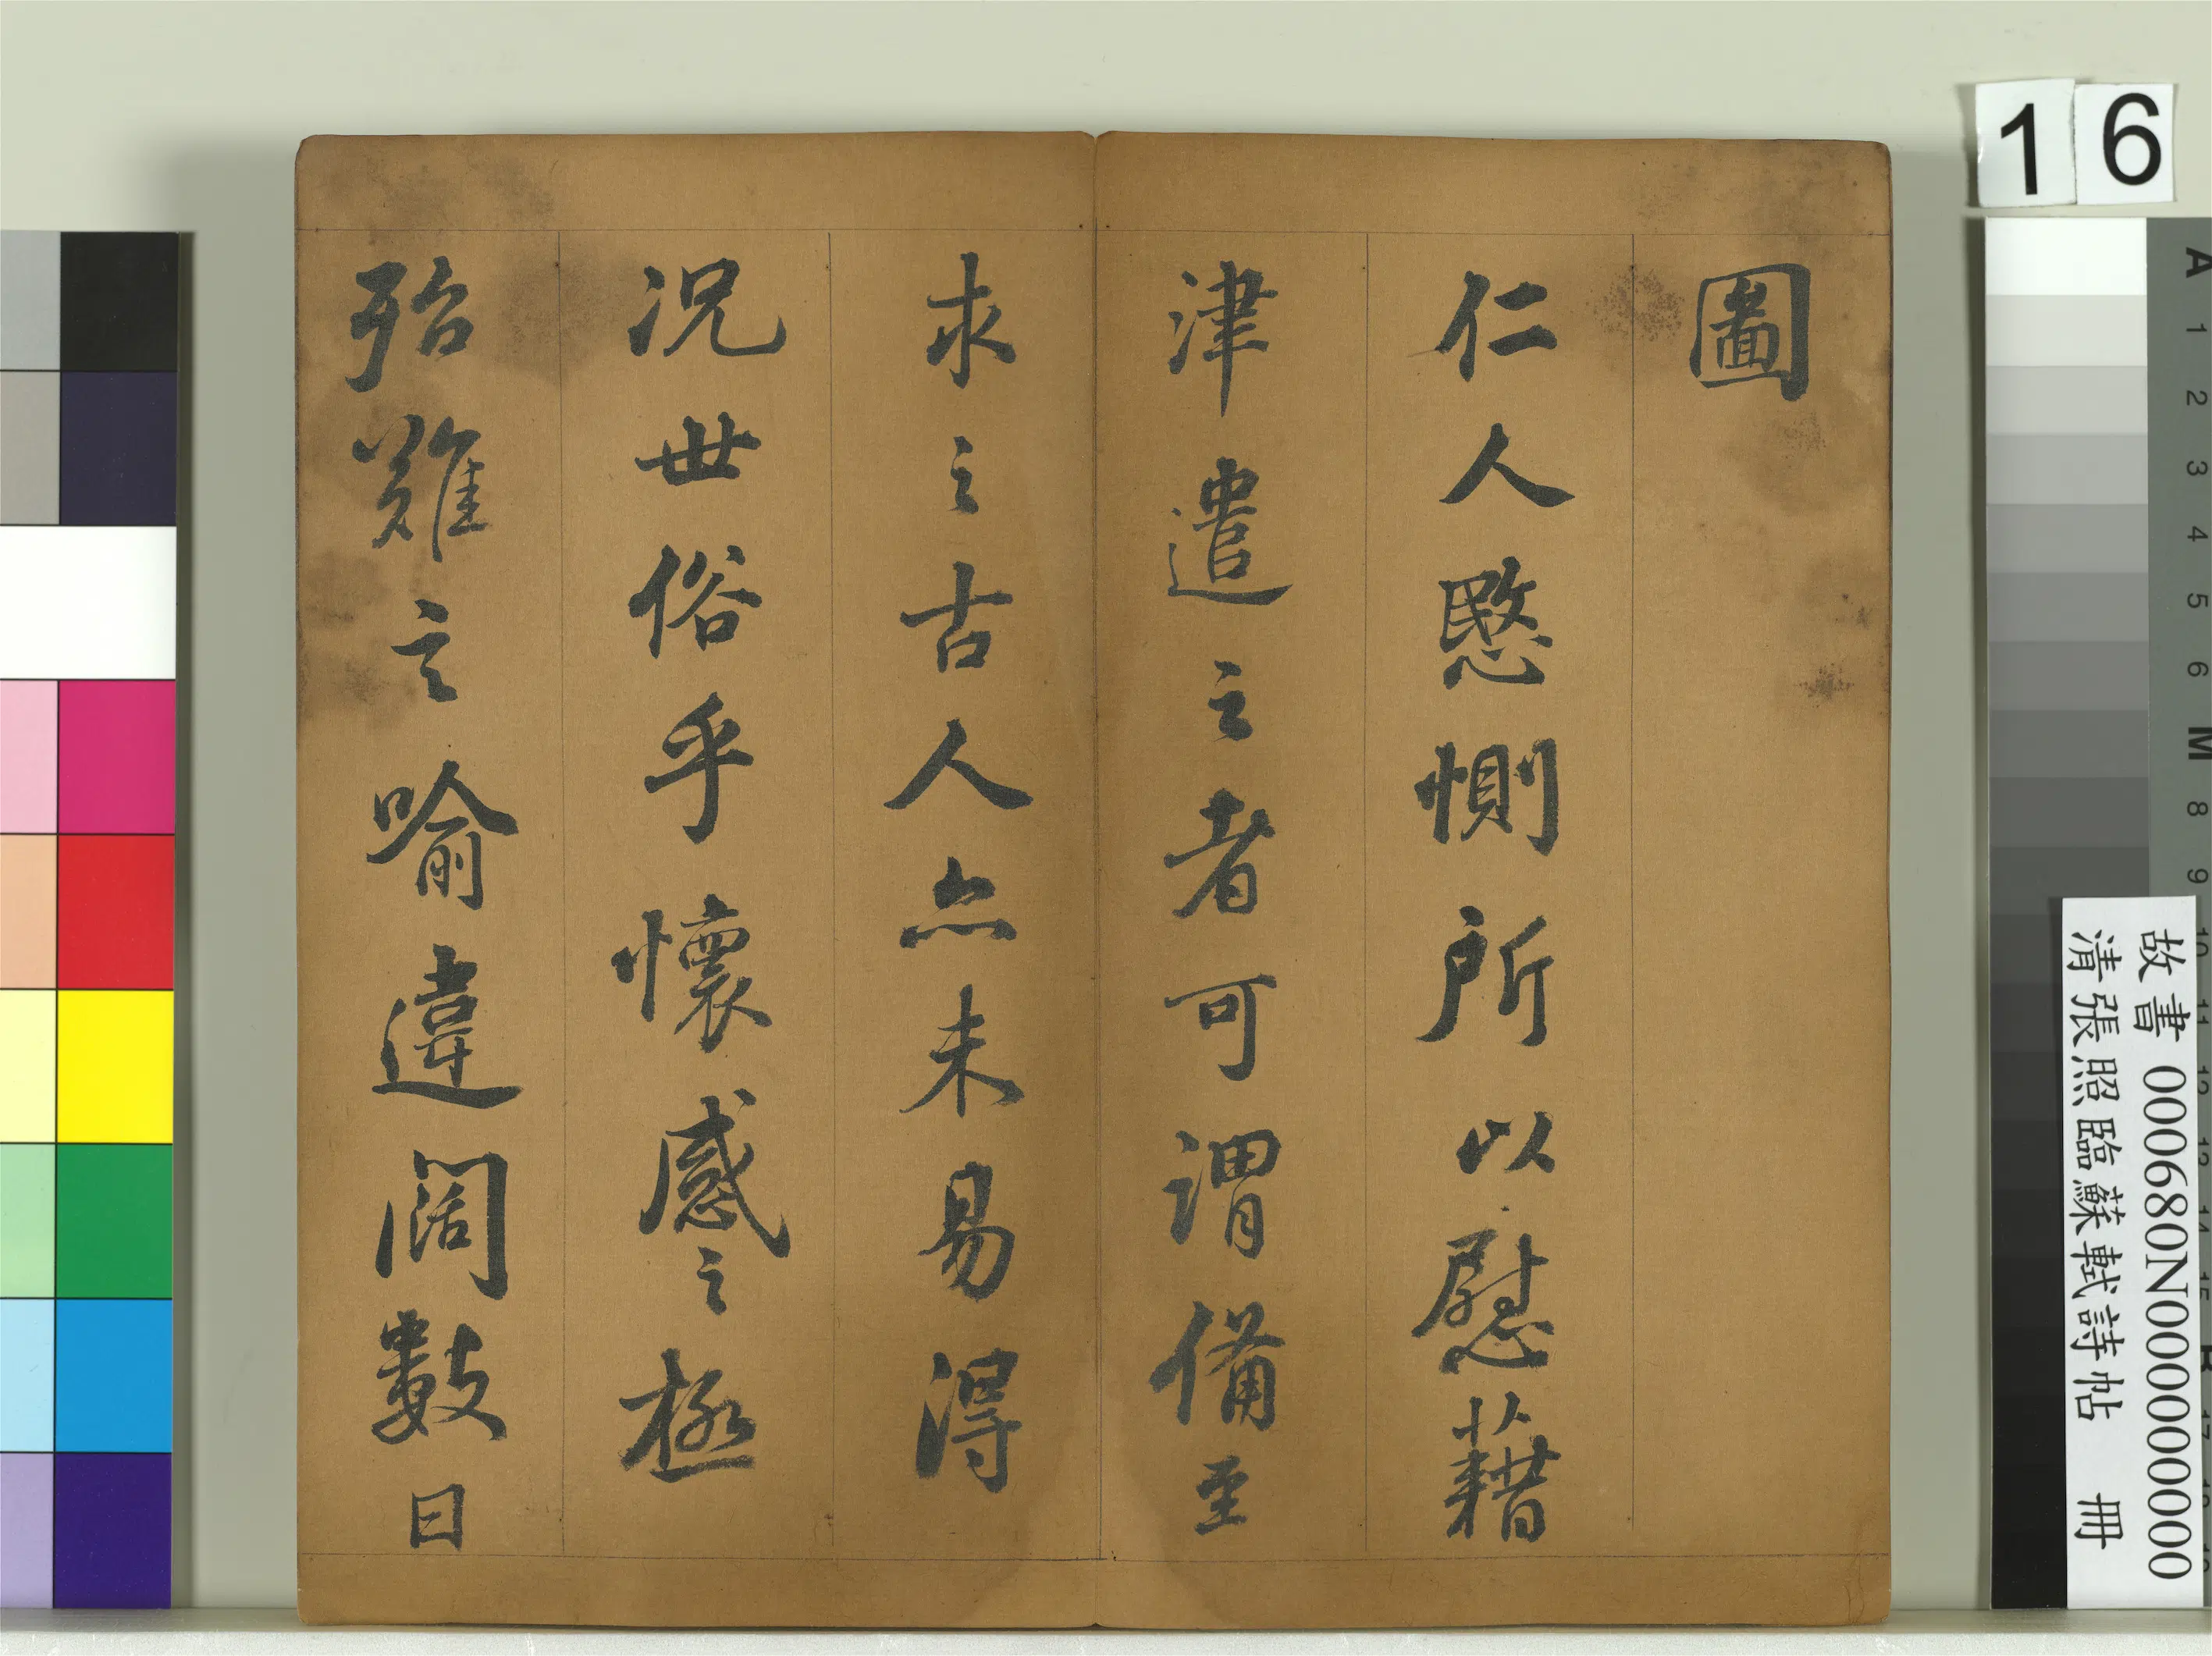 圖
仁人愍惻所以慰藉
津遣之者可謂備至
求之古人亦未易得
況世俗乎懷感之極
殆難言喻違闊數日
16
A
1
2
3
4
5
6
M
8
9
故書 000680N000000000
清張照臨蘇軾詩帖 冊